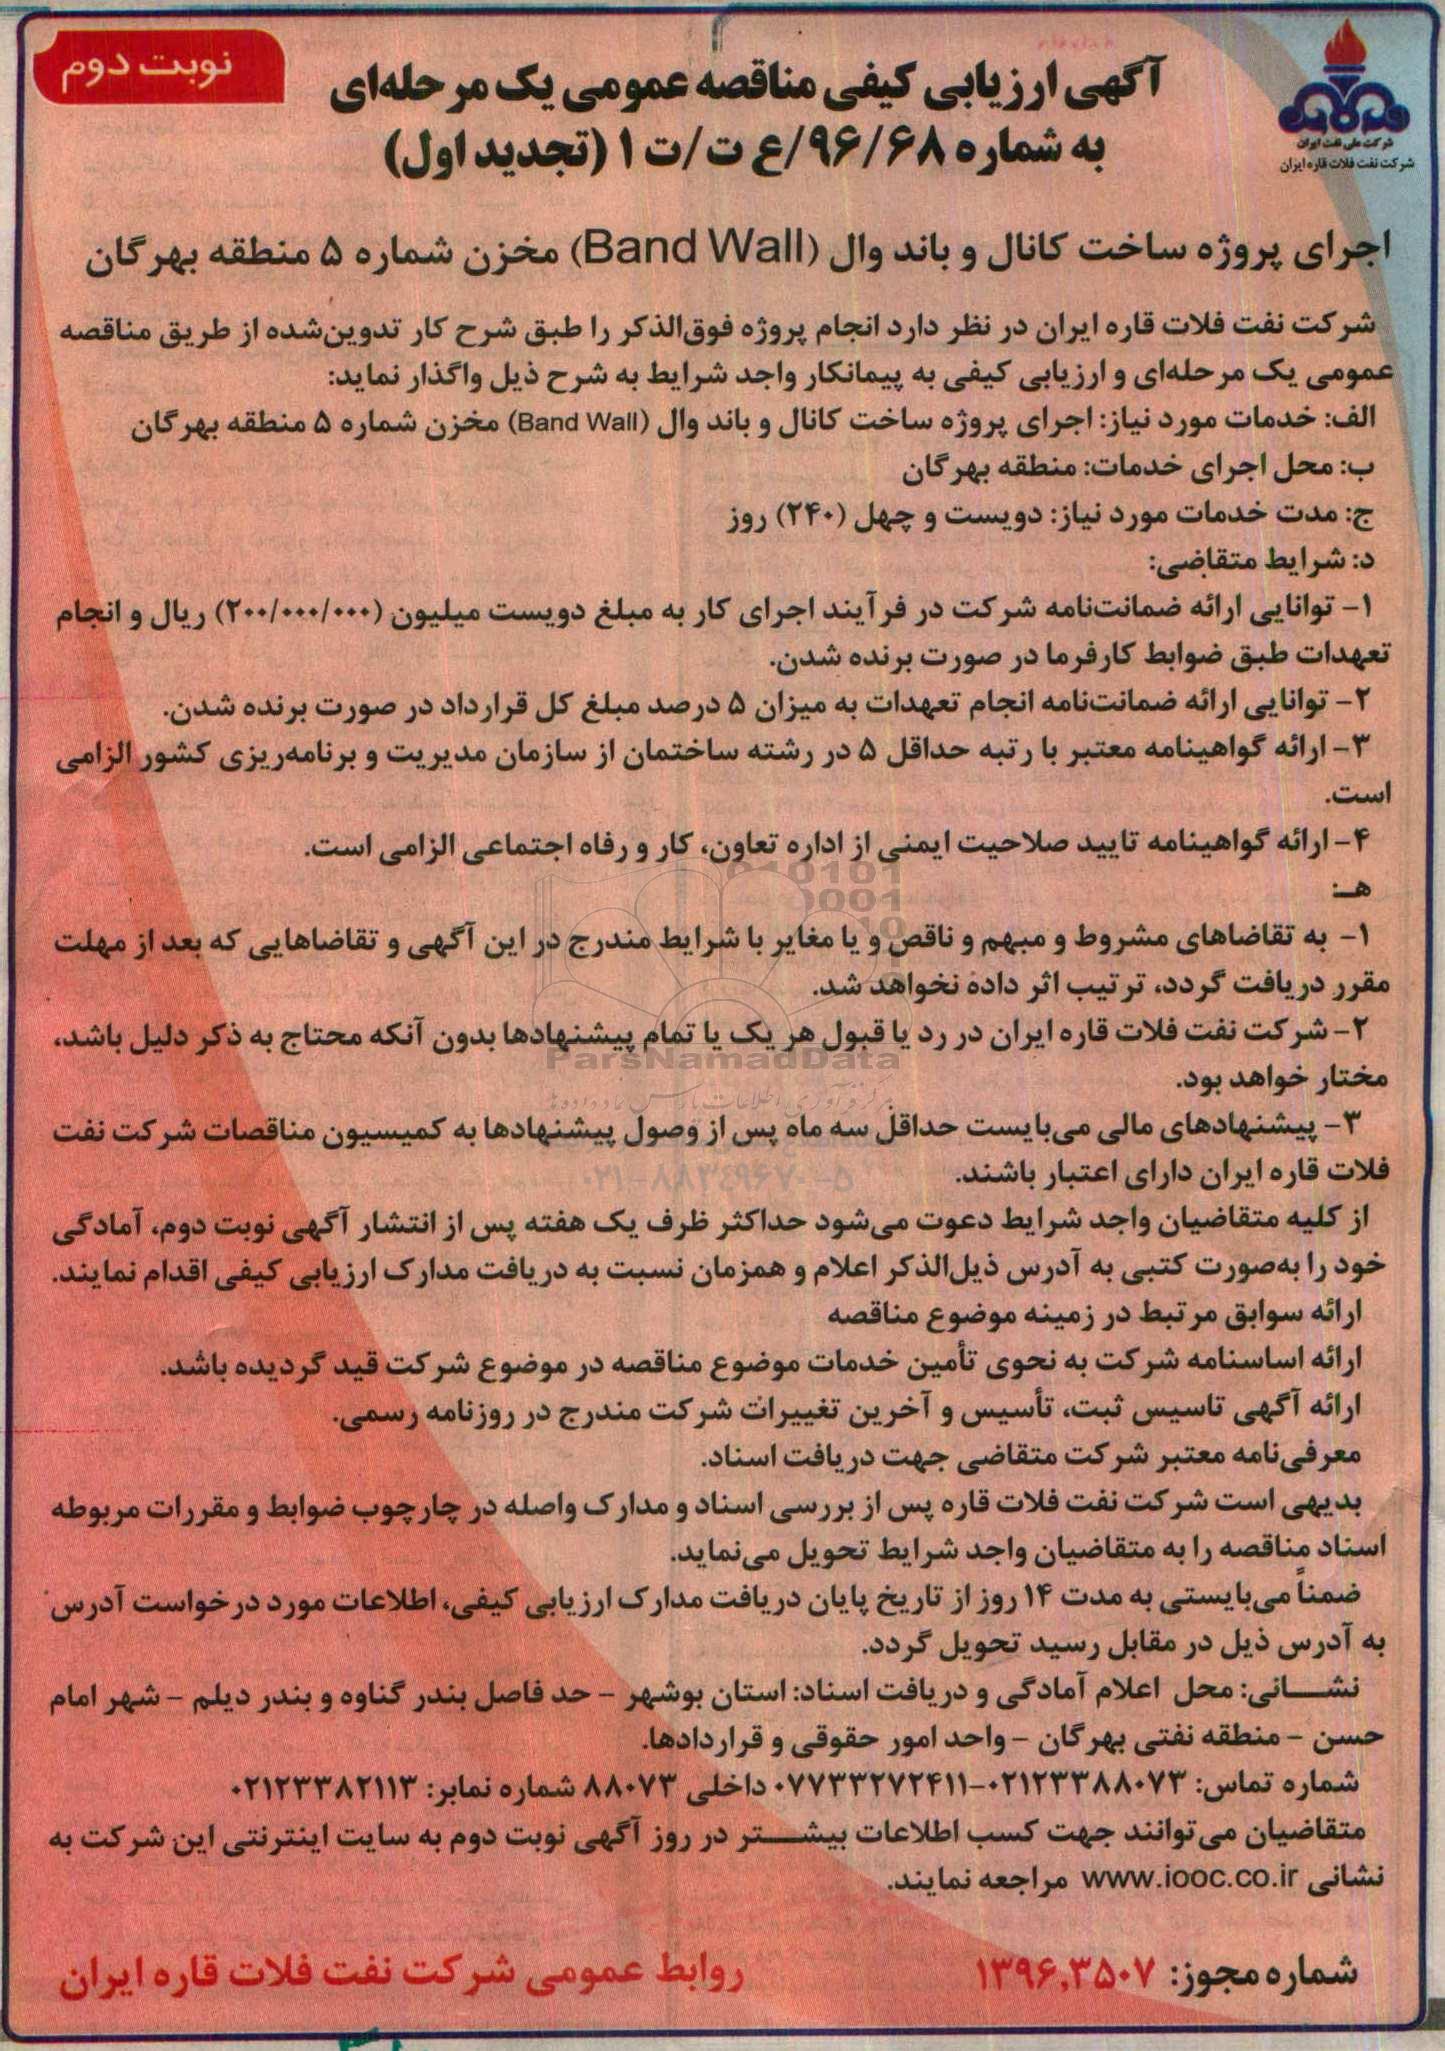 نوبت دوم
شرکت ملی نفت ایران
شرکت نفت فلات قاره ایران
آگهی ارزیابی کیفی مناقصه عمومی یک مرحله‌ای
به شماره ۹۶/۶۸/ع ت/ت ۱ (تجدید اول)
اجرای پروژه ساخت کانال و باند وال (Band Wall) مخزن شماره ۵ منطقه بهرگان
شرکت نفت فلات قاره ایران در نظر دارد انجام پروژه فوق‌الذکر را طبق شرح کار تدوین‌شده از طریق مناقصه
عمومی یک مرحله‌ای و ارزیابی کیفی به پیمانکار واجد شرایط به شرح ذیل واگذار نماید:
الف: خدمات مورد نیاز: اجرای پروژه ساخت کانال و باند وال (Band Wall) مخزن شماره ۵ منطقه بهرگان
ب: محل اجرای خدمات: منطقه بهرگان
ج: مدت خدمات مورد نیاز: دویست و چهل (۲۴۰) روز
د: شرایط متقاضی:
۱- توانایی ارائه ضمانت‌نامه شرکت در فرآیند اجرای کار به مبلغ دویست میلیون (۲۰۰/۰۰۰/۰۰۰) ریال و انجام
تعهدات طبق ضوابط کارفرما در صورت برنده شدن.
۲- توانایی ارائه ضمانت‌نامه انجام تعهدات به میزان ۵ درصد مبلغ کل قرارداد در صورت برنده شدن.
۳- ارائه گواهینامه معتبر با رتبه حداقل ۵ در رشته ساختمان از سازمان مدیریت و برنامه‌ریزی کشور الزامی
است.
۴- ارائه گواهینامه تایید صلاحیت ایمنی از اداره تعاون، کار و رفاه اجتماعی الزامی است.
هـ:
۱- به تقاضاهای مشروط و مبهم و ناقص و یا مغایر با شرایط مندرج در این آگهی و تقاضاهایی که بعد از مهلت
مقرر دریافت گردد، ترتیب اثر داده نخواهد شد.
۲- شرکت نفت فلات قاره ایران در رد یا قبول هر یک یا تمام پیشنهادها بدون آنکه محتاج به ذکر دلیل باشد،
ParsNamadData
مختار خواهد بود.
۳- پیشنهادهای مالی می‌بایست حداقل سه ماه پس از وصول پیشنهادها به کمیسیون مناقصات شرکت نفت
فلات قاره ایران دارای اعتبار باشند.
۰۲۱-۸۸۳۴۹۶۷۰-۵
از کلیه متقاضیان واجد شرایط دعوت می‌شود حداکثر ظرف یک هفته پس از انتشار آگهی نوبت دوم، آمادگی
خود را به‌صورت کتبی به آدرس ذیل‌الذکر اعلام و همزمان نسبت به دریافت مدارک ارزیابی کیفی اقدام نمایند.
ارائه سوابق مرتبط در زمینه موضوع مناقصه
ارائه اساسنامه شرکت به نحوی تأمین خدمات موضوع مناقصه در موضوع شرکت قید گردیده باشد.
ارائه آگهی تاسیس ثبت، تأسیس و آخرین تغییرات شرکت مندرج در روزنامه رسمی.
معرفی‌نامه معتبر شرکت متقاضی جهت دریافت اسناد.
بدیهی است شرکت نفت فلات قاره پس از بررسی اسناد و مدارک واصله در چارچوب ضوابط و مقررات مربوطه
اسناد مناقصه را به متقاضیان واجد شرایط تحویل می‌نماید.
ضمناً می‌بایستی به مدت ۱۴ روز از تاریخ پایان دریافت مدارک ارزیابی کیفی، اطلاعات مورد درخواست آدرس
به آدرس ذیل در مقابل رسید تحویل گردد.
نشـــانی: محل اعلام آمادگی و دریافت اسناد: استان بوشهر - حد فاصل بندر گناوه و بندر دیلم - شهر امام
حسن - منطقه نفتی بهرگان - واحد امور حقوقی و قراردادها.
شماره تماس: ۰۲۱۲۳۳۸۸۰۷۳-۰۷۷۳۳۲۷۲۴۱۱ داخلی ۸۸۰۷۳ شماره نمابر: ۰۲۱۲۳۳۸۲۱۱۳
متقاضیان می‌توانند جهت کسب اطلاعات بیشـــتر در روز آگهی نوبت دوم به سایت اینترنتی این شرکت به
نشانی www.iooc.co.ir مراجعه نمایند.
شماره مجوز: ۱۳۹۶,۳۵۰۷
روابط عمومی شرکت نفت فلات قاره ایران